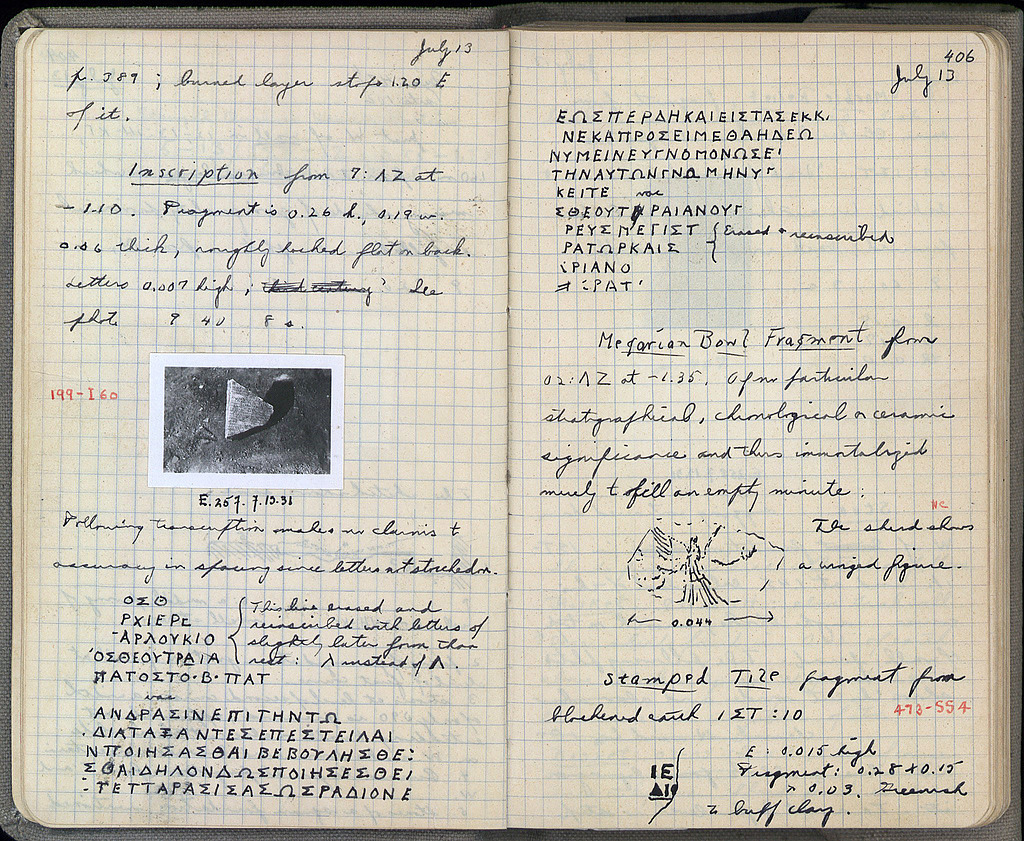 July 13
p. 389 ; burned layer stops 1.20 E
of it.
Inscription from 7: ΛΖ at
- 1.10. Fragment is 0.26 h., 0.19 w.
0.06 thick, roughly hacked flat on back.
Letters 0.007 high ; third century? See
photo 9 40 8 a.
199-I60
E.257. 7.13.31
Following transcription makes no claims to
accuracy in spacing since letters not stoichedon.
ΟΣΘ
ΡΧΙΕΡΕ
ΑΡΛΟΥΚΙΟ
ΟΣΘΕΟΥΤΡΑΙΑ
ΠΑΤΟΣΤΟ·Β·ΠΑΤ
This line erased and
reinscribed with letters of
slightly later form than
rest: λ instead of Λ.
vac
ΑΝΔΡΑΣΙΝΕΠΙΤΗΝΤΩ
ΔΙΑΤΑΞΑΝΤΕΣΕΠΕΣΤΕΙΛΑΙ
ΝΠΟΙΗΣΑΣΘΑΙΒΕΒΟΥΛΗΣΘΕ:
ΣΘΑΙΔΗΛΟΝΔΩΣΠΟΙΗΣΕΣΘΕΙ
ΤΕΤΤΑΡΑΣΙΣΑΣΩΣΡΑΔΙΟΝΕ
406
July 13
ΕΩΣΠΕΡΔΗΚΑΙΕΙΣΤΑΣΕΚΚ
ΝΕΚΑΠΡΟΣΕΙΜΕΘΑΗΔΕΩ
ΝΥΜΕΙΝΕΥΓΝΟΜΟΝΩΣΕΙ
ΤΗΝΑΥΤΩΝΓΝΩΜΗΝΥΓ
ΚΕΙΤΕ vac
ΣΘΕΟΥΤΡΑΙΑΝΟΥΓ
ΡΕΥΣΜΕΓΙΣΤ
ΡΑΤΩΡΚΑΙΣ
Erased + reinscribed
ΡΙΑΝΟ
ΡΑΤ
Megarian Bowl Fragment from
02: ΛΖ at -1.35. Of no particular
stratigraphical, chronological or ceramic
significance and thus immortalized
merely to fill an empty minute :
NC
The sherd shows
a winged figure.
0.044
Stamped Tile fragment from
blackened earth ΙΣΤ :10
473-SS4
ΙΕ
ΔΙΟ
E: 0.015 high
Fragment: 0.28 x 0.15
x 0.03. Greenish
buff clay.